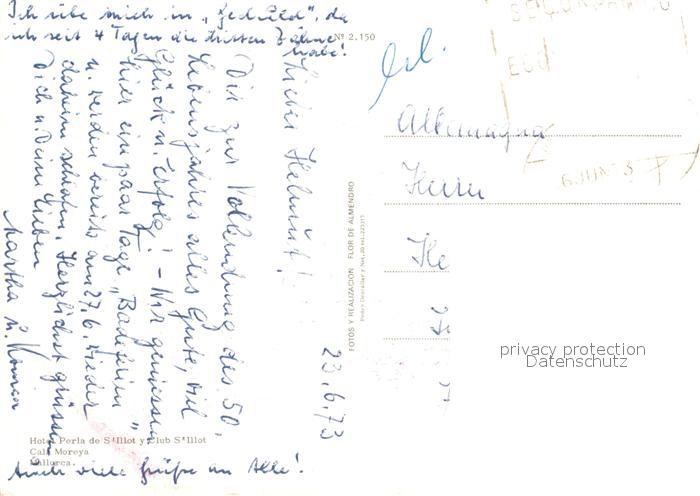 Ich übe mich in „Geduld", da
ich seit 4 Tagen die dritten Zähne
habe!
Nº 2.150
23.6.73
Lieber Helmut!
Dir zur Vollendung des 50.
Lebensjahres alles Gute, viel
Glück u. Erfolg! - Wir geniessen
hier ein paar Tage „Badeferien"
u. werden bereits am 27.6. wieder
daheim schlafen. Herzlichst grüssen
Dich u. Deine Lieben
Martha u.
Auch viele Grüße an Alle!
Hotel Perla de S'Illot y Club S'Illot
Cala Moreya
Mallorca.
FOTOS Y REALIZACION FLOR DE ALMENDRO
Allemagna
Herrn
He
privacy protection
Datenschutz